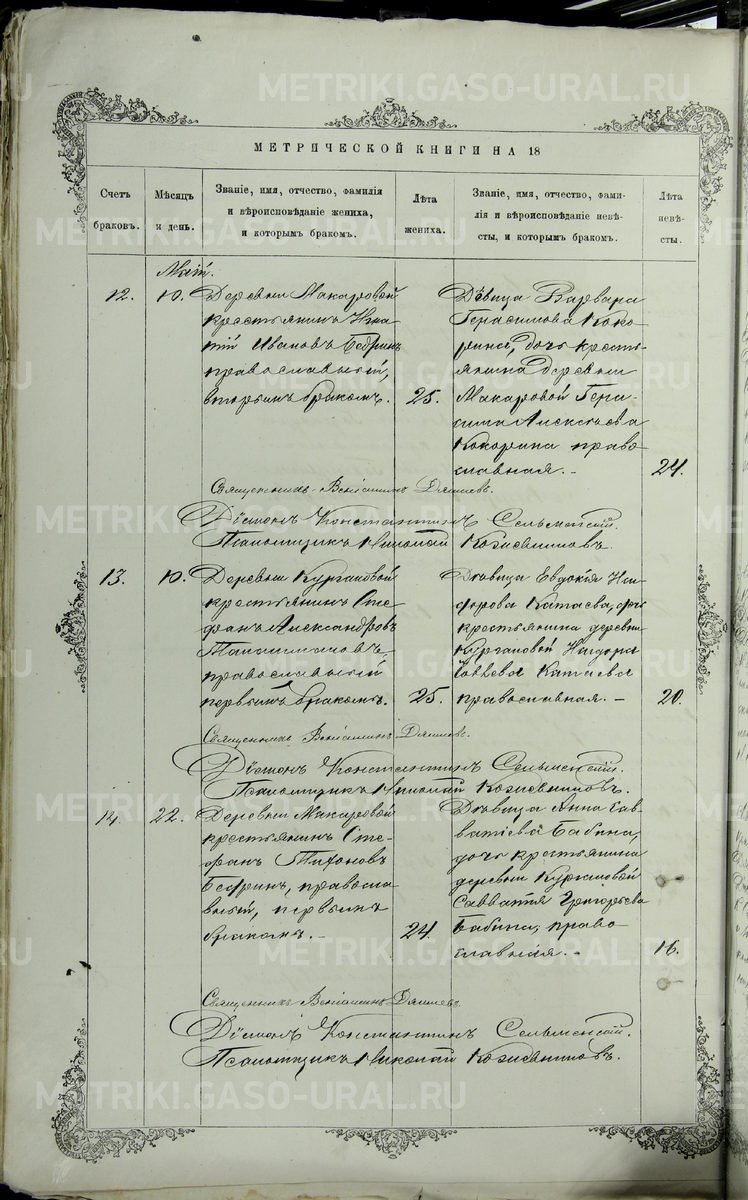 МЕТРИЧЕСКОЙ КНИГИ НА 18
Счетъ браковъ.
Мѣсяцъ и день.
Званіе, имя, отчество, фамилія
и вѣроисповѣданіе жениха,
и которымъ бракомъ.
Лѣта жениха.
Званіе, имя, отчество, фами-
лія и вѣроисповѣданіе невѣ-
сты, и которымъ бракомъ.
Лѣта невѣ-
сты.
Май.
12.
10.
Деревни Макаровой
крестьянинъ Игна-
тій Ивановъ Бедринъ
православный,
вторымъ бракомъ.
25.
Дѣвица Варвара
Герасимова Коко-
рина, дочь кресть-
янина деревни
Макаровой Гера-
сима Алексѣева
Кокорина право-
славная.-
24.
Священникъ Веніаминъ
Діаконъ Константинъ Сельменскій.
Псаломщикъ Николай
13.
10.
Деревни Кургановой
крестьянинъ Сте-
фанъ Александровъ
православный
первымъ бракомъ.
25.
Дѣвица Евдокія Иси-
дорова Катаева, дочь
крестьянина деревни
Кургановой Исидора
Катаева
православная.-
20.
Священникъ Веніаминъ
Діаконъ Константинъ Сельменскій.
Псаломщикъ Николай
14.
22.
Деревни Макаровой
крестьянинъ Сте-
фанъ Тихоновъ
Бедринъ, правосла-
вный, первымъ
бракомъ.-
24.
Дѣвица Анна Сав-
ватіева Бабина,
дочь крестьянина
деревни Кургановой
Савватія Григорьева
Бабина, право-
славная.-
16.
Священникъ Веніаминъ
Діаконъ Константинъ Сельменскій.
Псаломщикъ Николай
METRIKI.GASO-URAL.RU